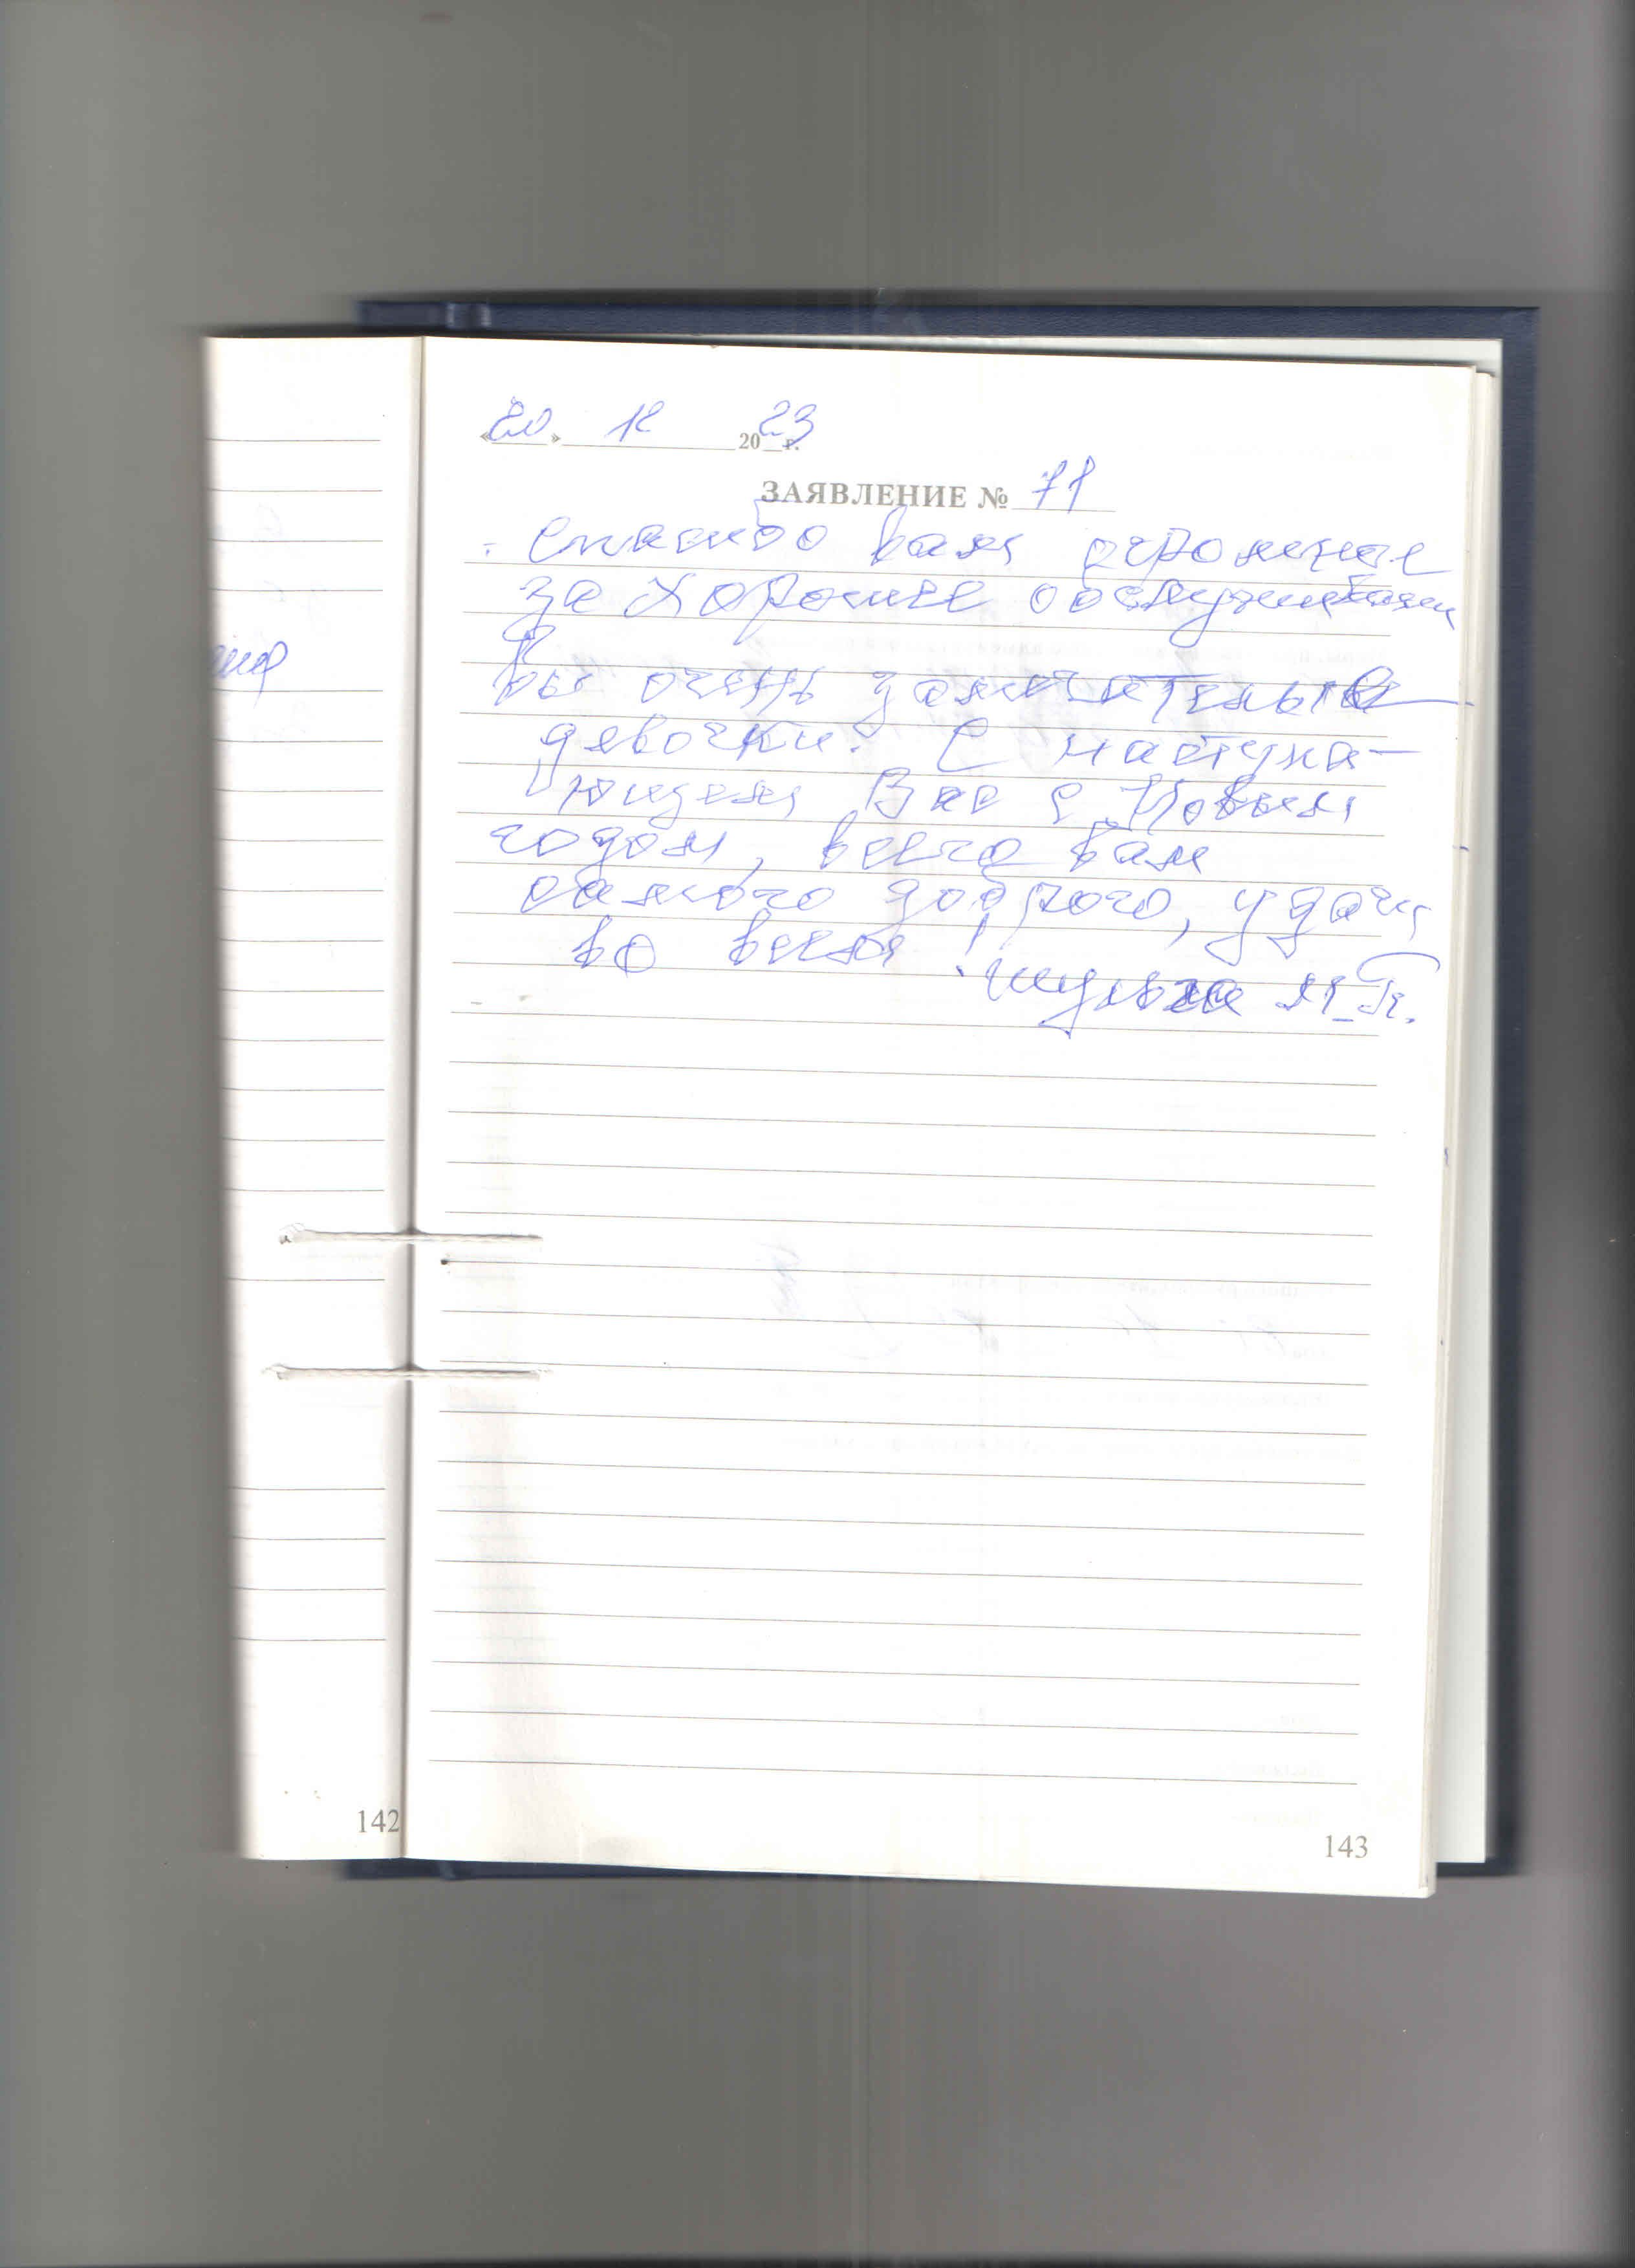 «20» 12 2023 г.
ЗАЯВЛЕНИЕ № 71
Спасибо вам огромное
за хорошее обслуживание
Вы очень замечательные
девочки! С наступа-
ющем Вас с Новым
годом, всего вам
самого доброго, удачи
во всем!
Шульга М.П.
142
143